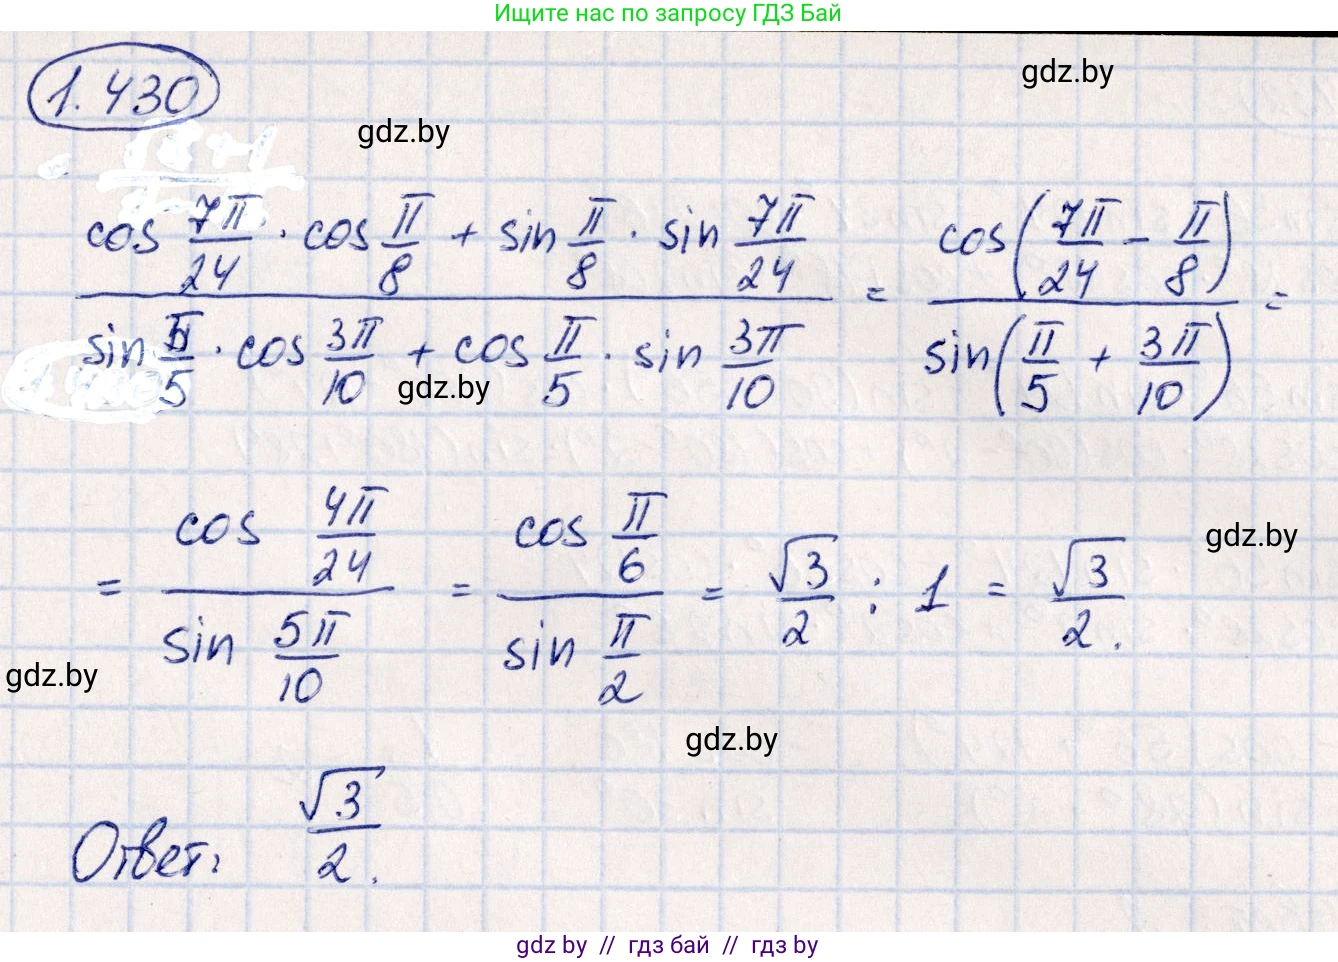 Ищите нас по запросу ГДЗ Бай
1.430
gdz.by
gdz.by
cos 7π/24 · cos π/8 + sin π/8 · sin 7π/24 / sin π/5 · cos 3π/10 + cos π/5 · sin 3π/10 = cos(7π/24 − π/8) / sin(π/5 + 3π/10) =
gdz.by
= cos 4π/24 / sin 5π/10 = cos π/6 / sin π/2 = √3/2 : 1 = √3/2.
gdz.by
gdz.by
gdz.by
Ответ: √3/2.
gdz by // гдз бай // гдз by